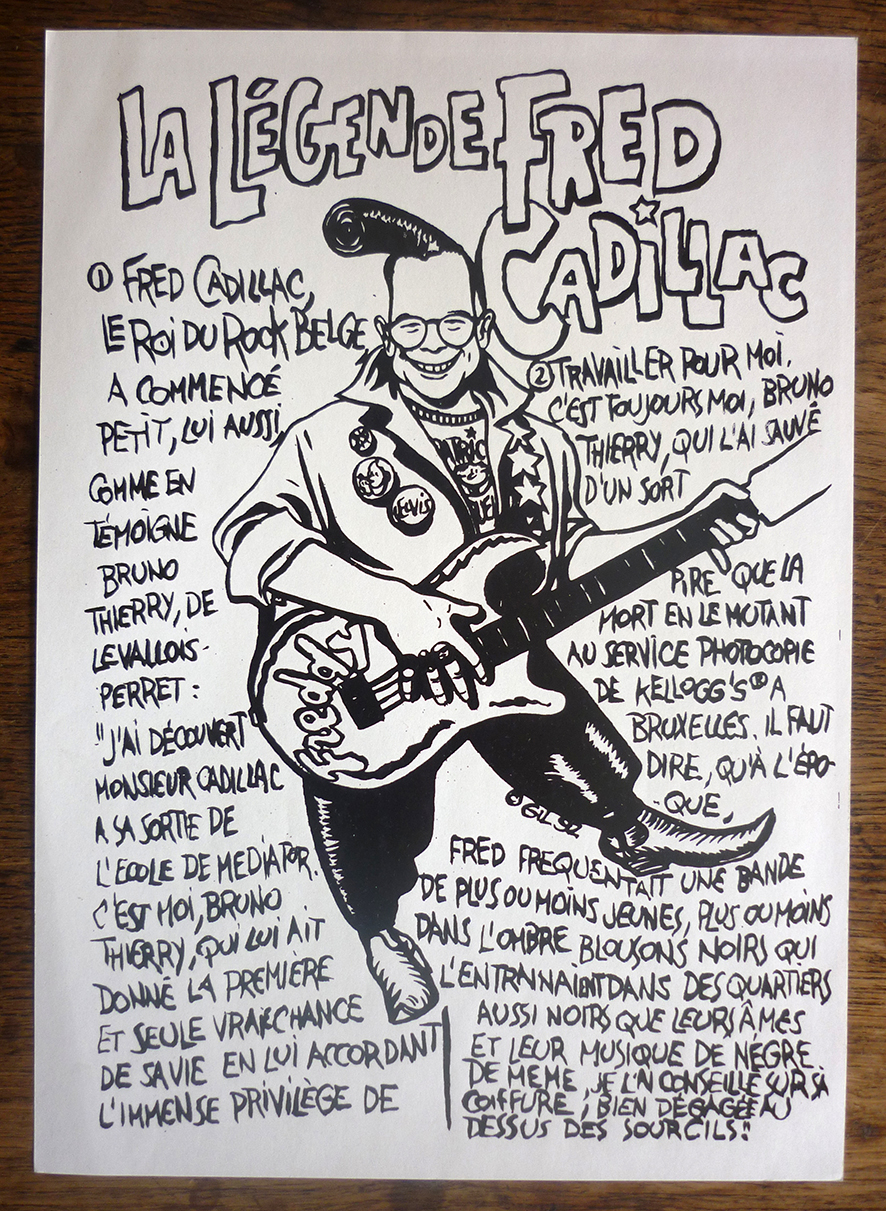 LA LÉGENDE FRED
CADILLAC
① FRED CADILLAC,
LE ROI DU ROCK BELGE
A COMMENCÉ
PETIT, LUI AUSSI,
COMME EN
TÉMOIGNE
BRUNO
THIERRY, DE
LEVALLOIS-
PERRET :
"J'AI DÉCOUVERT
MONSIEUR CADILLAC
A SA SORTIE DE
L'ECOLE DE MEDIATOR.
C'EST MOI, BRUNO
THIERRY, QUI LUI AIT
DONNÉ LA PREMIÈRE
ET SEULE VRAIE CHANCE
DE SA VIE EN LUI ACCORDANT
L'IMMENSE PRIVILÈGE DE
② TRAVAILLER POUR MOI.
C'EST TOUJOURS MOI, BRUNO
THIERRY, QUI L'AI SAUVÉ
D'UN SORT
PIRE QUE LA
MORT EN LE MUTANT
AU SERVICE PHOTOCOPIE
DE KELLOGG'S® A
BRUXELLES. IL FAUT
DIRE, QU'À L'ÉPO-
QUE,
FRED FREQUENTAIT UNE BANDE
DE PLUS OU MOINS JEUNES, PLUS OU MOINS
DANS L'OMBRE BLOUSONS NOIRS QUI
L'ENTRAINAIENT DANS DES QUARTIERS
AUSSI NOIRS QUE LEURS ÂMES
ET LEUR MUSIQUE DE NÉGRE.
DE MEME, JE L'AI CONSEILLÉ SUR SA
COIFFURE ; BIEN DÉGAGÉE AU
DESSUS DES SOURCILS."
ELVIS
Freddy
© GIL 92